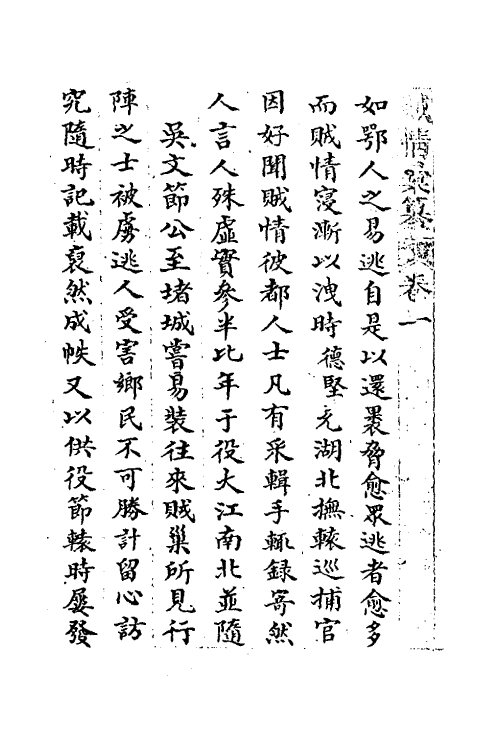 賊情彙纂 卷一
如鄂人之易逃自是以還裹脅愈眾逃者愈多
而賊情寖漸以洩時德堅充湖北撫轅巡捕官
因好聞賊情彼都人士凡有采輯手輒錄寄然
人言人殊虛實參半比年于役大江南北並隨
吳文節公至堵城嘗易裝往來賊巢所見行
陣之士被虜逃人受害鄉民不可勝計留心訪
究隨時記載裒然成帙又以供役節轅時屢發